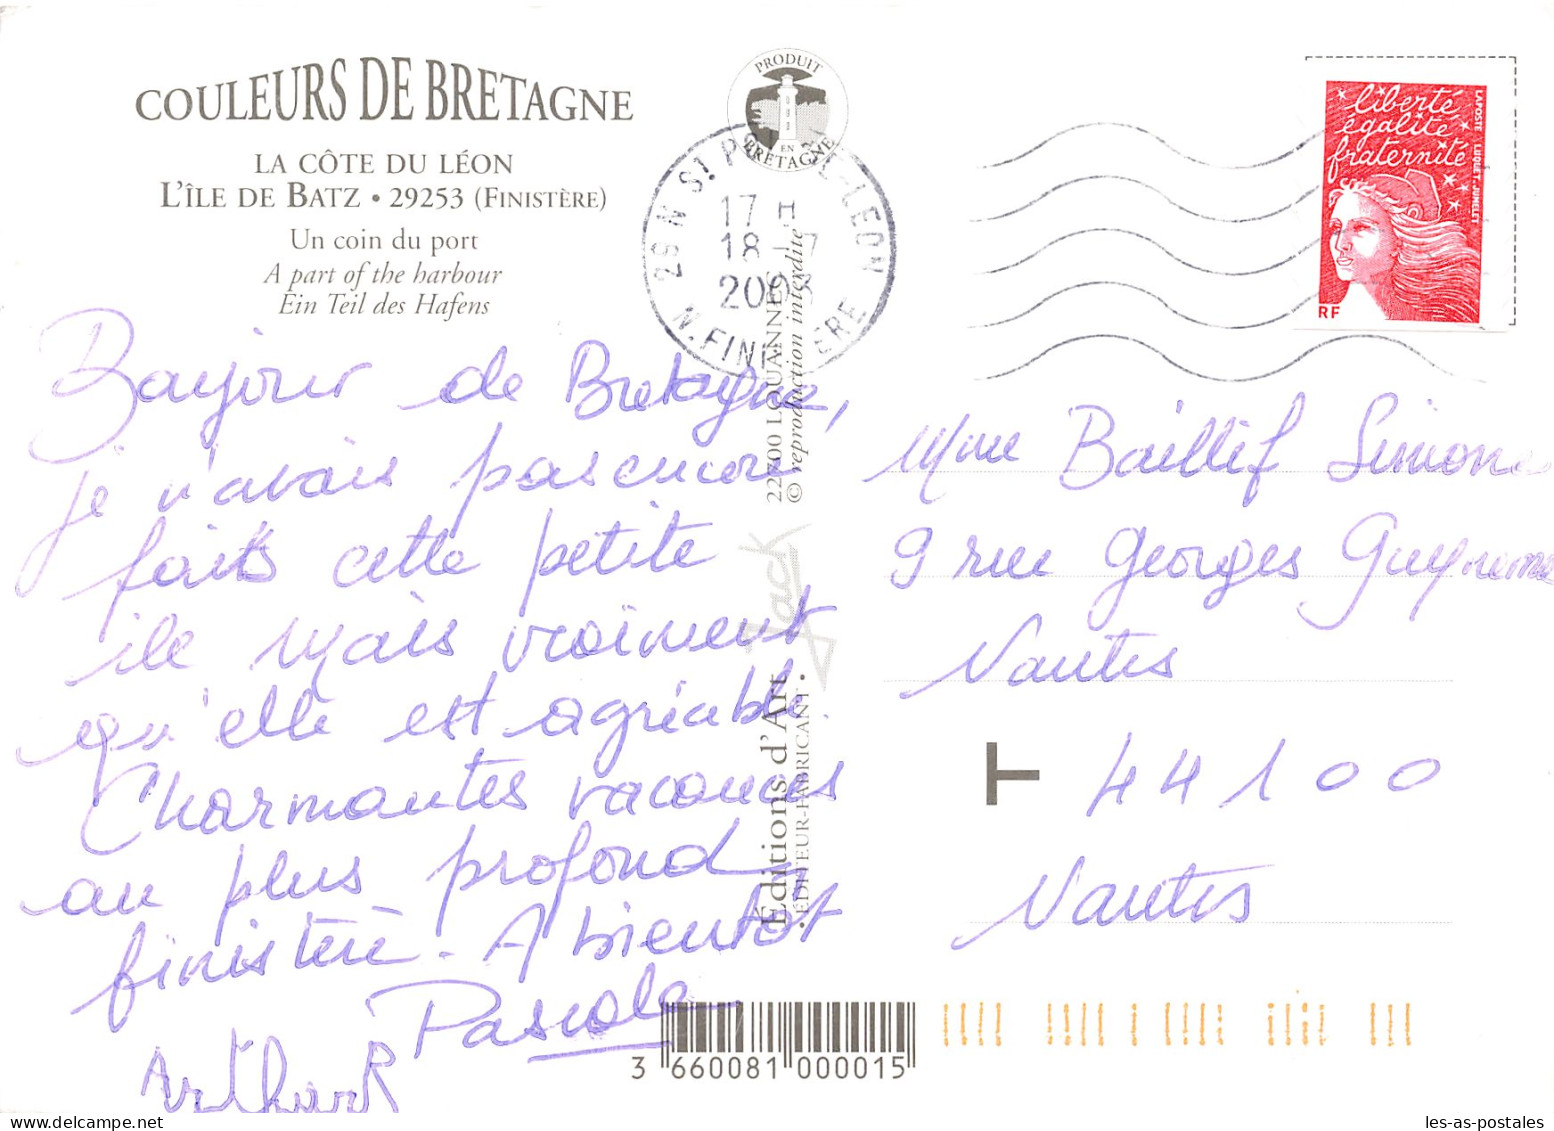 COULEURS DE BRETAGNE
LA CÔTE DU LÉON
L'ÎLE DE BATZ • 29253 (FINISTÈRE)
Un coin du port
A part of the harbour
Ein Teil des Hafens
Bonjour de Bretagne,
je n'avais pas encore
faits cette petite
ile mais vraiment
qu'elle est agréable.
Charmantes vacances
au plus profond
finistère. A bientôt
Pascale
Arthur
PRODUIT
EN
BRETAGNE
29 N St P L-LEON
17 H
18 -7
2003
N. FINISTERE
22700 LOUANNEC
© reproduction interdite
Jack
Éditions d'Art
• ÉDITEUR-FABRICANT •
liberté
égalité
fraternité
LAPOSTE LUQUET-JUMELET
RF
Mme Baillif Simone
9 rue Georges Guynemer
Nantes
T
44100
Nantes
3 660081 000015
les-as-postales